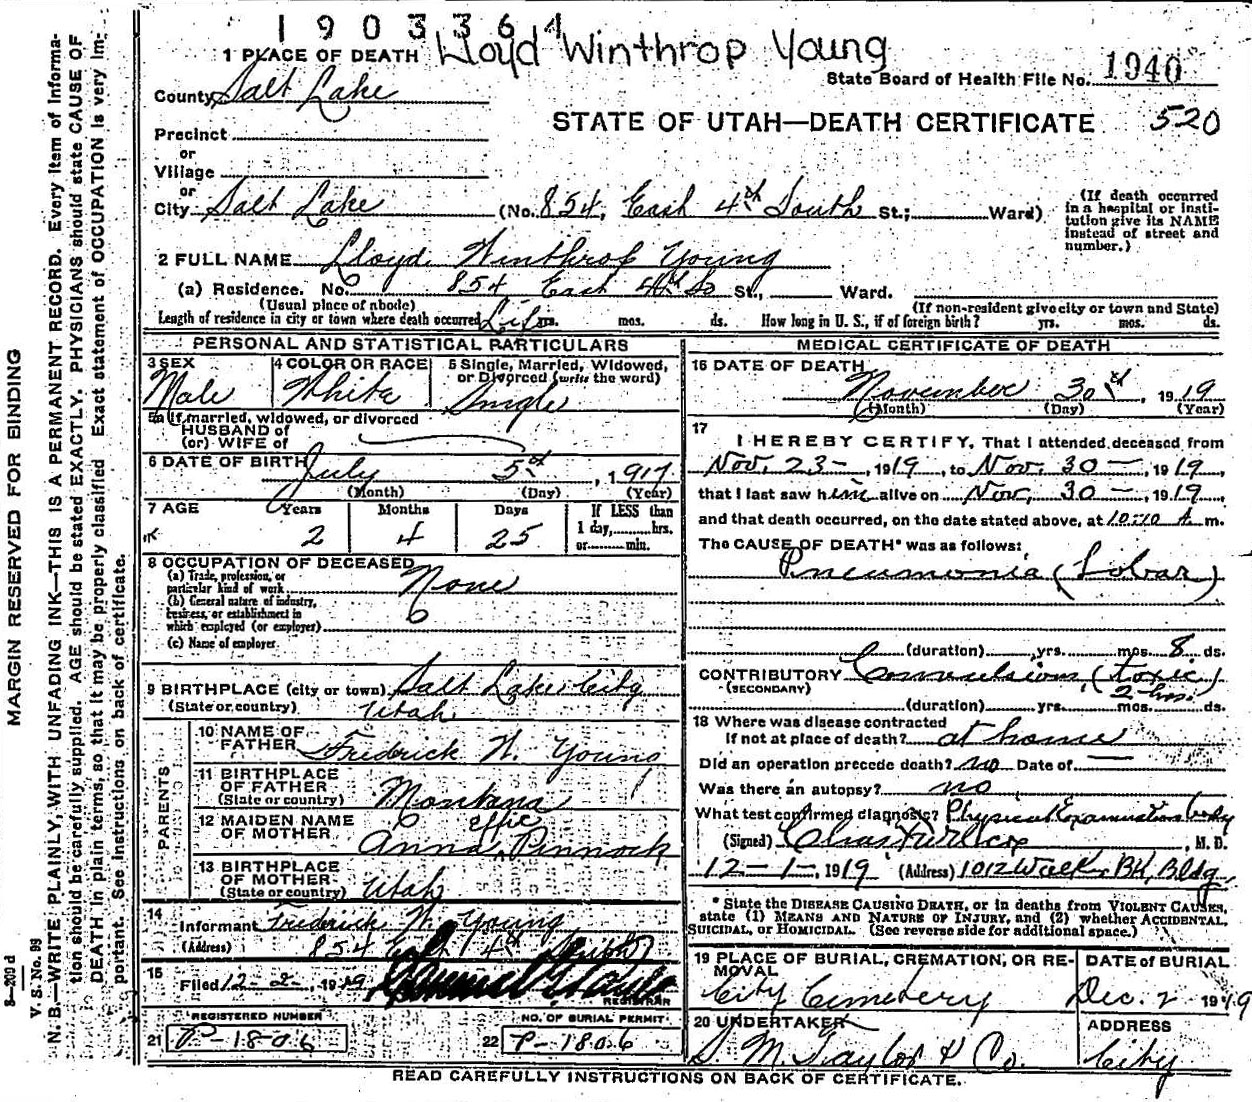 1903364
Lloyd Winthrop Young
1 PLACE OF DEATH
State Board of Health File No. 1940
County Salt Lake
STATE OF UTAH—DEATH CERTIFICATE 520
Precinct
or
Village
or
City Salt Lake (No. 854, East 4th South St.; Ward)
(If death occurred in a hospital or institution give its NAME instead of street and number.)
2 FULL NAME Lloyd Winthrop Young
(a) Residence. No. 854 East 4th So St., Ward.
(Usual place of abode) (If non-resident give city or town and State)
Length of residence in city or town where death occurred Life yrs. mos. ds. How long in U. S., if of foreign birth? yrs. mos. ds.
PERSONAL AND STATISTICAL PARTICULARS
3 SEX Male
4 COLOR OR RACE White
5 Single, Married, Widowed, or Divorced (write the word) Single
5a If married, widowed, or divorced
HUSBAND of
(or) WIFE of
6 DATE OF BIRTH July 5th, 1917
(Month) (Day) (Year)
7 AGE Years Months Days If LESS than
2 4 25 1 day, hrs.
or min.
8 OCCUPATION OF DECEASED
(a) Trade, profession, or particular kind of work None
(b) General nature of industry, business, or establishment in which employed (or employer)
(c) Name of employer
9 BIRTHPLACE (city or town) Salt Lake City
(State or country) Utah
PARENTS
10 NAME OF FATHER Fredrick W. Young
11 BIRTHPLACE OF FATHER (State or country) Montana
12 MAIDEN NAME OF MOTHER Anna Effie Pinnock
13 BIRTHPLACE OF MOTHER (State or country) Utah
14 Informant Fredrick W. Young
(Address) 854 East 4th South
15 Filed 12-2, 1919
REGISTRAR
REGISTERED NUMBER
21 P-1806
NO. OF BURIAL PERMIT
22 P-1806
MEDICAL CERTIFICATE OF DEATH
16 DATE OF DEATH
November 30th, 1919
(Month) (Day) (Year)
17
I HEREBY CERTIFY, That I attended deceased from
Nov. 23-, 1919, to Nov. 30-, 1919,
that I last saw him alive on Nov, 30-, 1919,
and that death occurred, on the date stated above, at 10:10 A m.
The CAUSE OF DEATH* was as follows:
Pneumonia (Lobar)
(duration) yrs. mos. 8 ds.
CONTRIBUTORY Convulsions, (toxic)
(SECONDARY) 2-hrs.
(duration) yrs. mos. ds.
18 Where was disease contracted
If not at place of death? at home
Did an operation precede death? no Date of —
Was there an autopsy? no
What test confirmed diagnosis? Physical Examination
(Signed) Chas F Wilcox, M. D.
12-1-, 1919 (Address) 1012 Walk. BK, Bldg,
* State the DISEASE CAUSING DEATH, or in deaths from VIOLENT CAUSES,
state (1) MEANS AND NATURE OF INJURY, and (2) whether ACCIDENTAL,
SUICIDAL, or HOMICIDAL. (See reverse side for additional space.)
19 PLACE OF BURIAL, CREMATION, OR REMOVAL
City Cemetery
DATE of BURIAL
Dec. 2 1919
20 UNDERTAKER
S. M. Taylor & Co.
ADDRESS
City
READ CAREFULLY INSTRUCTIONS ON BACK OF CERTIFICATE.
MARGIN RESERVED FOR BINDING
V. S. No. 93
N. B.—WRITE PLAINLY, WITH UNFADING INK—THIS IS A PERMANENT RECORD. Every item of informa-
tion should be carefully supplied. AGE should be stated EXACTLY. PHYSICIANS should state CAUSE OF
DEATH in plain terms, so that it may be properly classified. Exact statement of OCCUPATION is very im-
portant. See instructions on back of certificate.